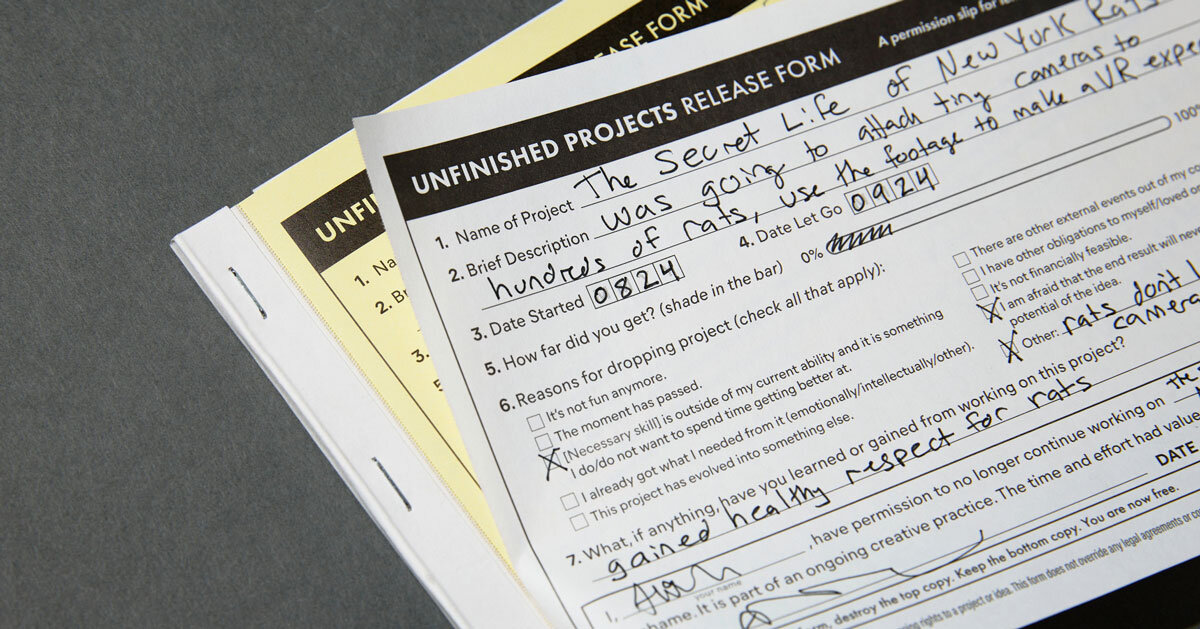 EASE FORM
UNFINISHED PROJECTS RELEASE FORM
A permission slip for
1. Name of Project The Secret Life of New York Rats
2. Brief Description was going to attach tiny cameras to
hundreds of rats, use the footage to make a VR expe
3. Date Started 0824
4. Date Let Go 0924
5. How far did you get? (shade in the bar) 0% 100%
6. Reasons for dropping project (check all that apply):
It's not fun anymore.
The moment has passed.
[Necessary skill] is outside of my current ability and it is something
I do/do not want to spend time getting better at.
I already got what I needed from it (emotionally/intellectually/other).
This project has evolved into something else.
There are other external events out of my co
I have other obligations to myself/loved
It's not financially feasible.
I am afraid that the end result will never
potential of the idea.
Other: rats don't
camera
7. What, if anything, have you learned or gained from working on this project?
gained healthy respect for rats
I, , have permission to no longer continue working on The
your name
name. It is part of an ongoing creative practice. The time and effort had value
DATE
rm, destroy the top copy. Keep the bottom copy. You are now free.
ning rights to a project or idea. This form does not override any legal agreements or co
UNFI
1. Na
2. B
3.
5